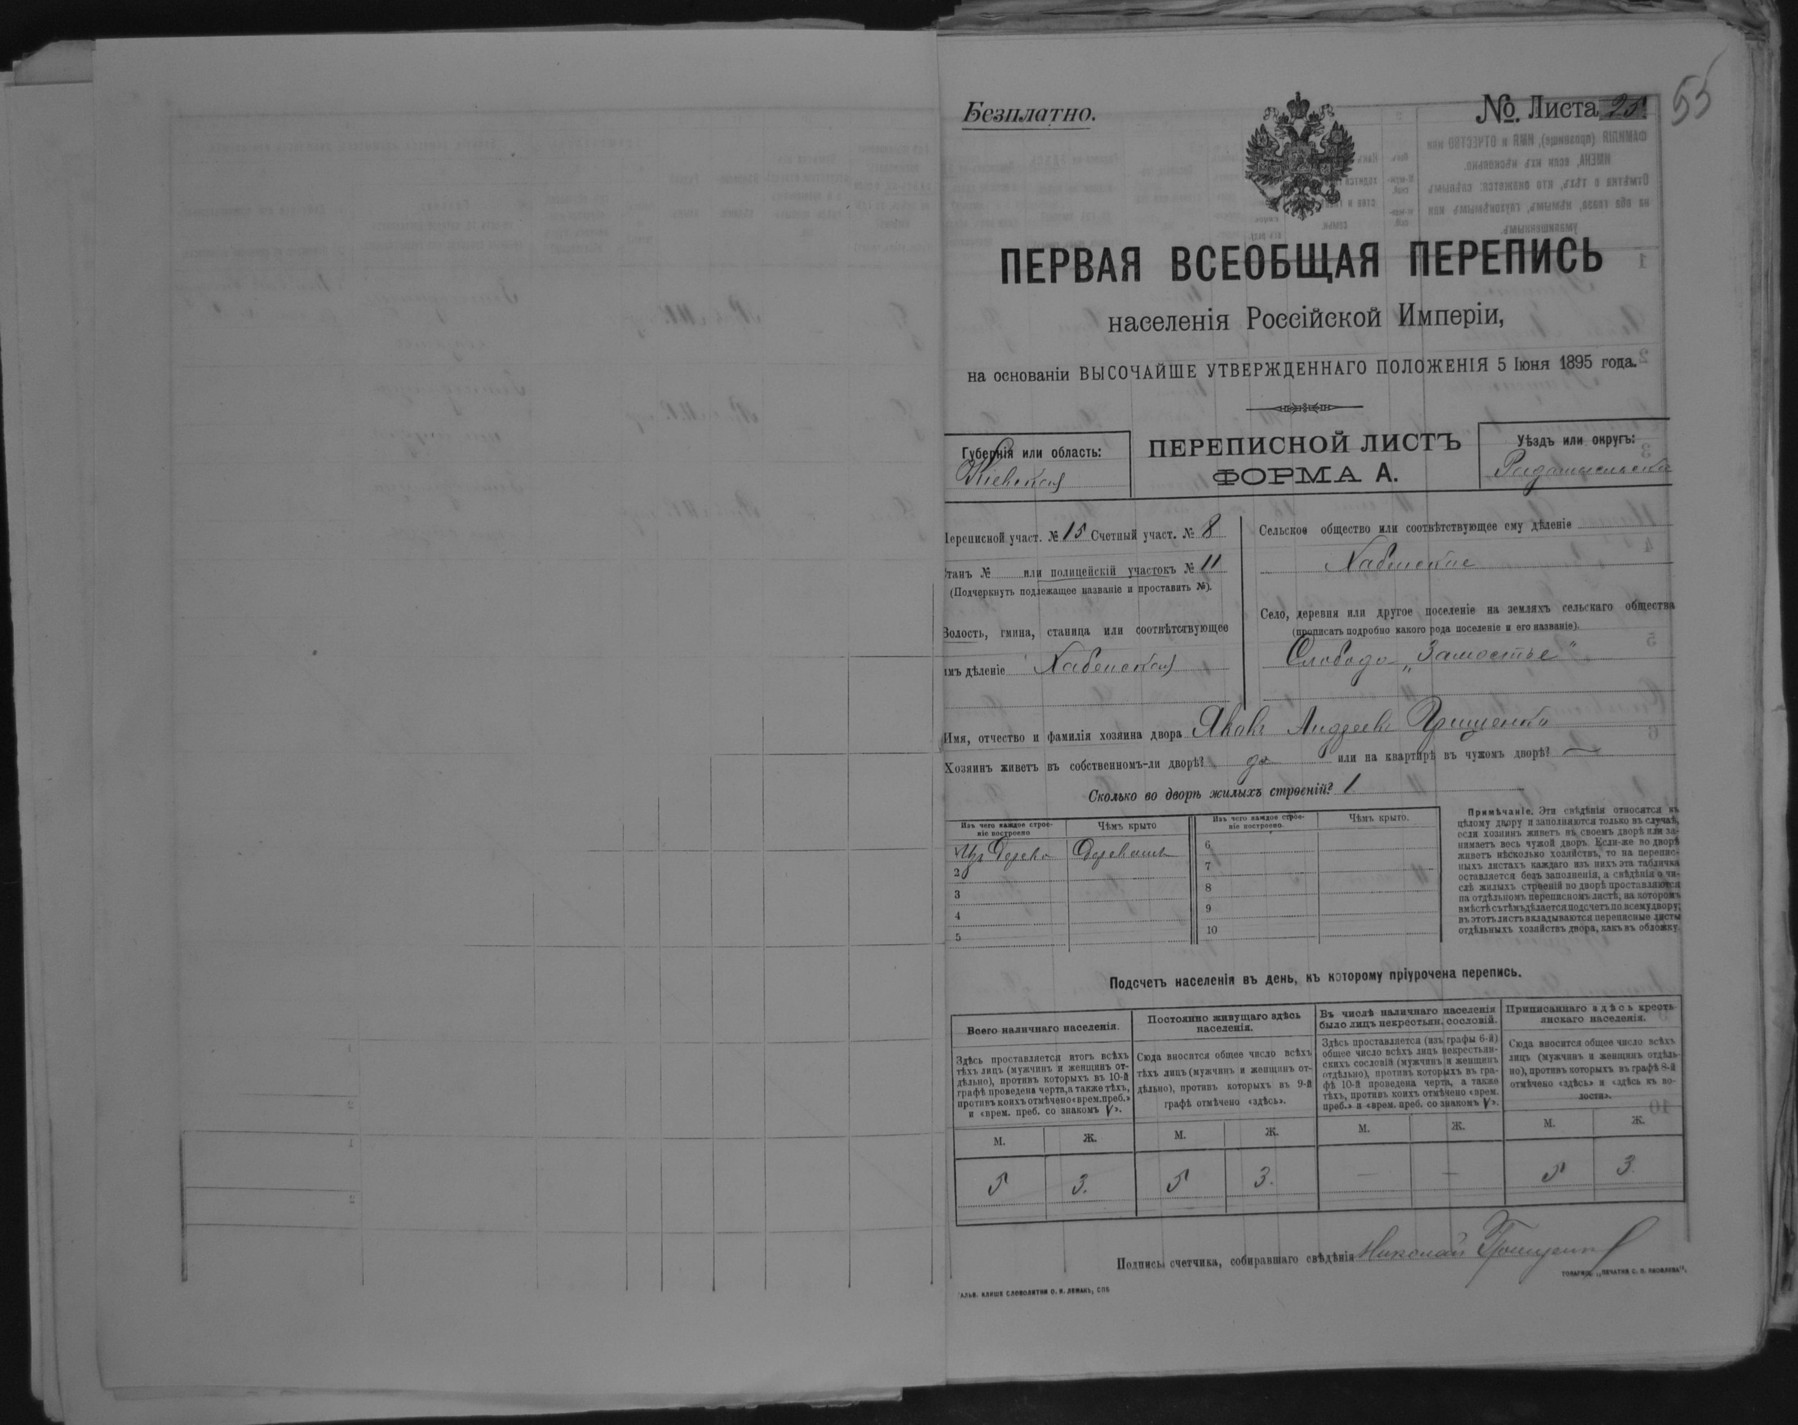 Безплатно.
№. Листа 25
55
ПЕРВАЯ ВСЕОБЩАЯ ПЕРЕПИСЬ
населенія Россійской Имперіи,
на основаніи ВЫСОЧАЙШЕ УТВЕРЖДЕННАГО ПОЛОЖЕНІЯ 5 Іюня 1895 года.
Губернія или область:
Кіевская
ПЕРЕПИСНОЙ ЛИСТЪ
ФОРМА А.
Уѣздъ или округъ:
Радомысльскій
Переписной участ. № 15 Счетный участ. № 8
Станъ № или полицейскій участокъ № 11
(Подчеркнуть подлежащее названіе и проставить №).
Волость, гмина, станица или соотвѣтствующее
имъ дѣленіе Хабенская
Сельское общество или соотвѣтствующее ему дѣленіе
Хабенское
Село, деревня или другое поселеніе на земляхъ сельскаго общества
(прописать подробно какого рода поселеніе и его названіе).
Слобода „Замостье"
Имя, отчество и фамилія хозяина двора Яковъ Андреевъ Грищенко
Хозяинъ живетъ въ собственномъ-ли дворѣ? да или на квартирѣ въ чужомъ дворѣ? —
Сколько во дворѣ жилыхъ строеній? 1
Изъ чего каждое строе-
ніе построено
Чѣмъ крыто
Изъ чего каждое строе-
ніе построено.
Чѣмъ крыто.
1 Изъ Дерева
2
3
4
5
6
7
8
9
10
Примѣчаніе. Эти свѣдѣнія относятся къ
цѣлому двору и заполняются только въ случаѣ,
если хозяинъ живетъ въ своемъ дворѣ или за-
нимаетъ весь чужой дворъ. Если-же во дворѣ
живетъ нѣсколько хозяйствъ, то на перепис-
ныхъ листахъ каждаго изъ нихъ эта табличка
оставляется безъ заполненія, а свѣдѣнія о чи-
слѣ жилыхъ строеній во дворѣ проставляются
на отдѣльномъ переписномъ листѣ, на которомъ
вмѣстѣ съ тѣмъ дѣлается подсчетъ по всему двору;
въ этотъ листъ вкладываются переписные листы
отдѣльныхъ хозяйствъ двора, какъ въ обложку.
Подсчетъ населенія въ день, къ которому пріурочена перепись.
Всего наличнаго населенія.
Здѣсь проставляется итогъ всѣхъ
тѣхъ лицъ (мужчинъ и женщинъ от-
дѣльно), противъ которыхъ въ 10-й
графѣ проведена черта, а также тѣхъ,
противъ коихъ отмѣчено «врем. преб.»
и «врем. преб. со знакомъ V».
Постоянно живущаго здѣсь
населенія.
Сюда вносится общее число всѣхъ
тѣхъ лицъ (мужчинъ и женщинъ от-
дѣльно), противъ которыхъ въ 9-й
графѣ отмѣчено «здѣсь».
Въ числѣ наличнаго населенія
было лицъ некрестьян. сословій.
Здѣсь проставляется (изъ графы 6-й)
общее число всѣхъ лицъ некрестьян-
скихъ сословій (мужчинъ и женщинъ
отдѣльно), противъ которыхъ въ гра-
фѣ 10-й проведена черта, а также
тѣхъ, противъ коихъ отмѣчено «врем.
преб.» и «врем. преб. со знакомъ V».
Приписаннаго здѣсь кресть-
янскаго населенія.
Сюда вносится общее число всѣхъ
лицъ (мужчинъ и женщинъ отдѣль-
но), противъ которыхъ въ графѣ 8-й
отмѣчено «здѣсь» и «здѣсь въ во-
лости».
М. Ж. М. Ж. М. Ж. М. Ж.
5 3. 5 3. — — 5 3
Подпись счетчика, собиравшаго свѣдѣнія Николай Грищенко
ГАЛЬВ. КЛИШЕ СЛОВОЛИТНИ О. И. ЛЕМАНЪ, СПБ
ТОВАРИЩ. „ПЕЧАТНЯ С. П. ЯКОВЛЕВА".